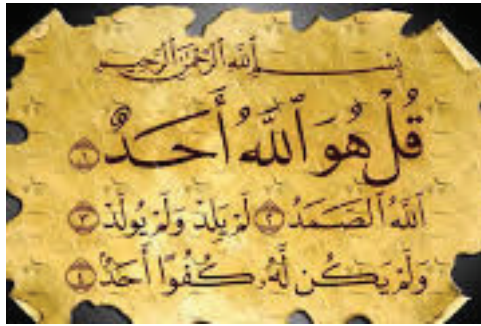 بِسْمِ ٱللَّهِ ٱلرَّحْمَٰنِ ٱلرَّحِيمِ
قُلْ هُوَ ٱللَّهُ أَحَدٌ ١
ٱللَّهُ ٱلصَّمَدُ ٢ لَمْ يَلِدْ وَلَمْ يُولَدْ ٣
وَلَمْ يَكُن لَّهُۥ كُفُوًا أَحَدٌ ٤